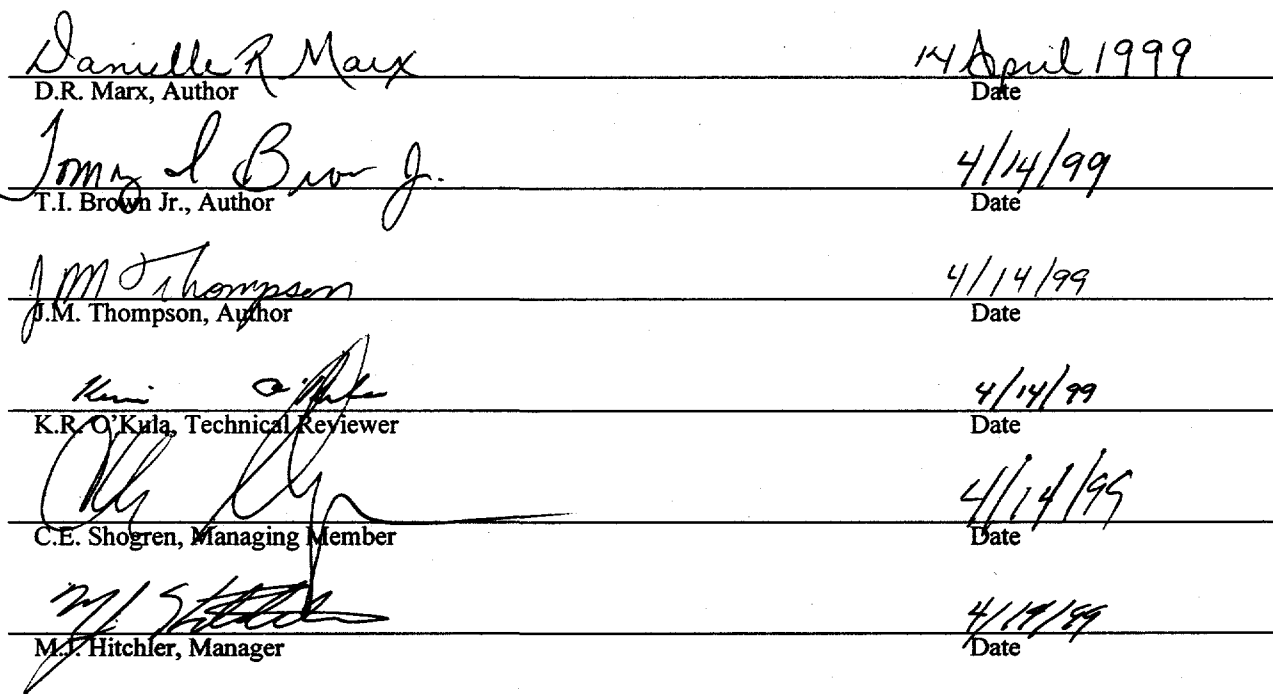 Danielle R Marx 14 April 1999
D.R. Marx, Author Date
Tomy I Brow Jr. 4/14/99
T.I. Brown Jr., Author Date
J M Thompson 4/14/99
J.M. Thompson, Author Date
4/14/99
K.R. O'Kula, Technical Reviewer Date
4/14/99
C.E. Shogren, Managing Member Date
4/19/99
M.J. Hitchler, Manager Date